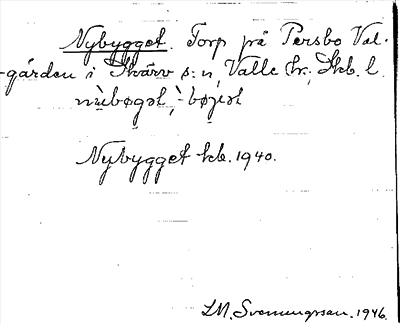 Nybygget. Torp på Persbo Val-
gården i Skärv s:n, Valle hr, Skb. l.
nỳbøgət, -bøjət
Nybygget kb. 1940.
LM. Svennungsson. 1946.